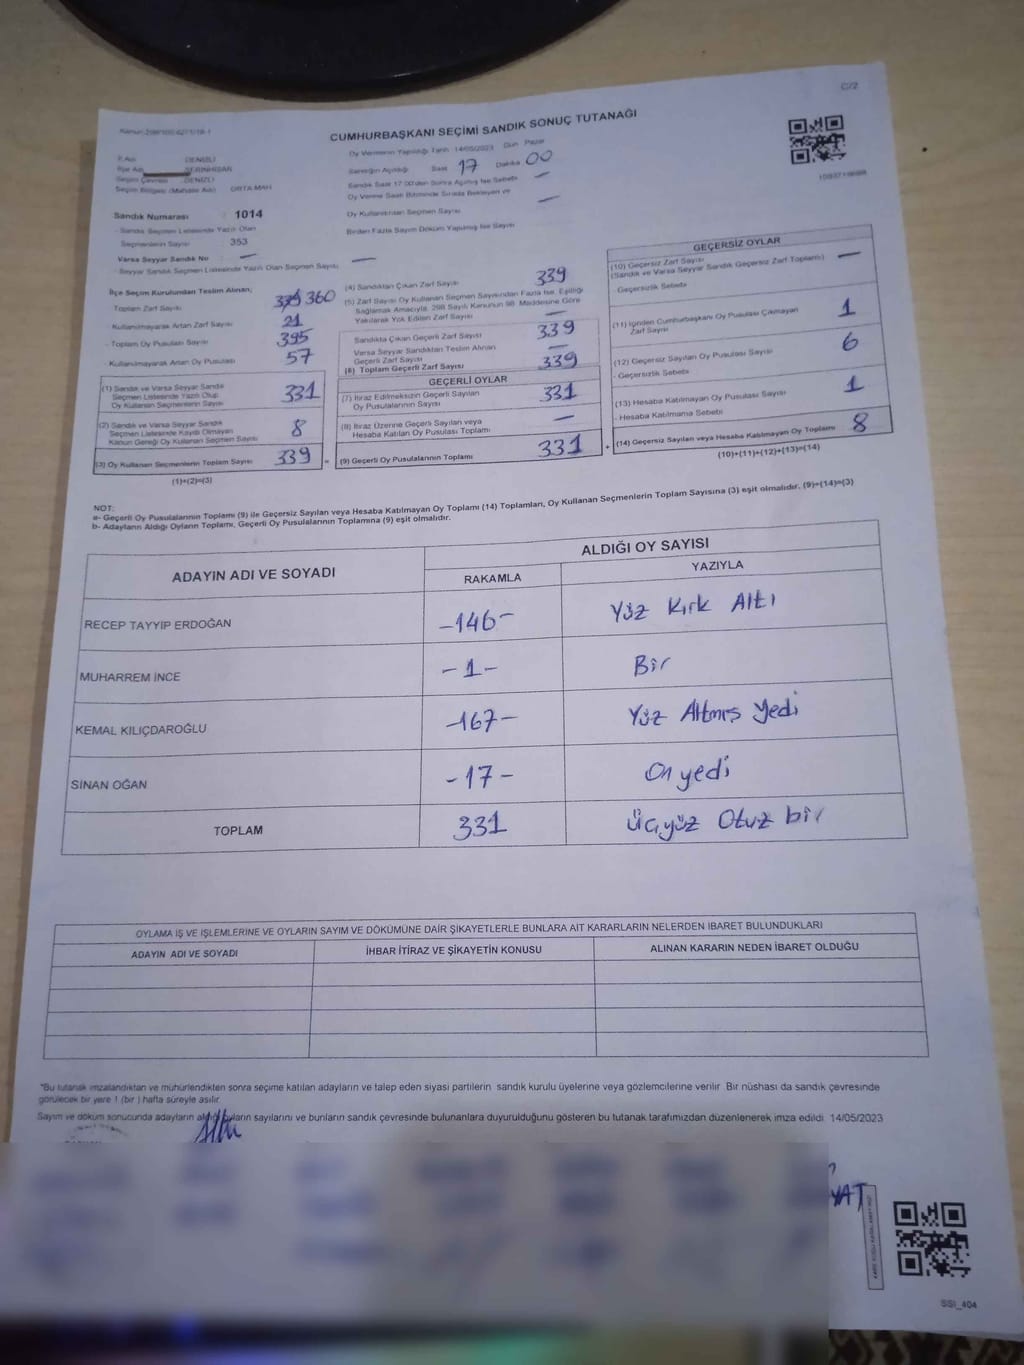 C/2
CUMHURBAŞKANI SEÇİMİ SANDIK SONUÇ TUTANAĞI
İl Adı : DENİZLİ
İlçe Adı SERİNHİSAR
Seçim Çevresi : DENİZLİ
Seçim Bölgesi (Mahalle Adı) : ORTA MAH
Sandık Numarası : 1014
- Sandık Seçmen Listesinde Yazılı Olan
Seçmenlerin Sayısı : 353
Varsa Seyyar Sandık No : —
- Seyyar Sandık Seçmen Listesinde Yazılı Olan Seçmen Sayısı : —
Oy Vermenin Yapıldığı Tarih 14/05/2023 Gün Pazar
Sandığın Açıldığı Saat 17 Dakika 00
Sandık Saat 17.00'den Sonra Açılmış İse Sebebi —
Oy Verme Saati Bitiminde Sırada Bekleyen ve
Oy Kullandırılan Seçmen Sayısı —
Birden Fazla Sayım Döküm Yapılmış İse Sayısı
İlçe Seçim Kurulundan Teslim Alınan;
Toplam Zarf Sayısı 360
Kullanılmayarak Artan Zarf Sayısı 21
- Toplam Oy Pusulası Sayısı 395
- Kullanılmayarak Artan Oy Pusulası 57
(1) Sandık ve Varsa Seyyar Sandık
Seçmen Listesinde Yazılı Olup
Oy Kullanan Seçmenlerin Sayısı 331
(2) Sandık ve Varsa Seyyar Sandık
Seçmen Listesinde Kaydı Olmayan
Kanun Gereği Oy Kullanan Seçmen Sayısı 8
(3) Oy Kullanan Seçmenlerin Toplam Sayısı 339 =
(1)+(2)=(3)
(4) Sandıktan Çıkan Zarf Sayısı 339
(5) Zarf Sayısı Oy Kullanan Seçmen Sayısından Fazla İse, Eşitliği
Sağlamak Amacıyla, 298 Sayılı Kanunun 98. Maddesine Göre
Yakılarak Yok Edilen Zarf Sayısı —
Sandıkta Çıkan Geçerli Zarf Sayısı 339
Varsa Seyyar Sandıktan Teslim Alınan
Geçerli Zarf Sayısı —
(6) Toplam Geçerli Zarf Sayısı 339
GEÇERLİ OYLAR
(7) İtiraz Edilmeksizin Geçerli Sayılan
Oy Pusulalarının Sayısı 331
(8) İtiraz Üzerine Geçerli Sayılan veya
Hesaba Katılan Oy Pusulası Toplamı —
(9) Geçerli Oy Pusulalarının Toplamı 331 +
GEÇERSİZ OYLAR
(10) Geçersiz Zarf Sayısı
(Sandık ve Varsa Seyyar Sandık Geçersiz Zarf Toplamı) —
- Geçersizlik Sebebi
(11) İçinden Cumhurbaşkanı Oy Pusulası Çıkmayan
Zarf Sayısı 1
(12) Geçersiz Sayılan Oy Pusulası Sayısı 6
- Geçersizlik Sebebi
(13) Hesaba Katılmayan Oy Pusulası Sayısı 1
- Hesaba Katılmama Sebebi
(14) Geçersiz Sayılan veya Hesaba Katılmayan Oy Toplamı 8
(10)+(11)+(12)+(13)=(14)
NOT:
a- Geçerli Oy Pusulalarının Toplamı (9) ile Geçersiz Sayılan veya Hesaba Katılmayan Oy Toplamı (14) Toplamları, Oy Kullanan Seçmenlerin Toplam Sayısına (3) eşit olmalıdır. (9)+(14)=(3)
b- Adayların Aldığı Oyların Toplamı, Geçerli Oy Pusulalarının Toplamına (9) eşit olmalıdır.
ADAYIN ADI VE SOYADI
ALDIĞI OY SAYISI
RAKAMLA YAZIYLA
RECEP TAYYİP ERDOĞAN -146- Yüz Kırk Altı
MUHARREM İNCE -1- Bir
KEMAL KILIÇDAROĞLU -167- Yüz Altmış Yedi
SİNAN OĞAN -17- On yedi
TOPLAM 331 Üçyüz Otuz bir
OYLAMA İŞ VE İŞLEMLERİNE VE OYLARIN SAYIM VE DÖKÜMÜNE DAİR ŞİKAYETLERLE BUNLARA AİT KARARLARIN NELERDEN İBARET BULUNDUKLARI
ADAYIN ADI VE SOYADI İHBAR İTİRAZ VE ŞİKAYETİN KONUSU ALINAN KARARIN NEDEN İBARET OLDUĞU
*Bu tutanak imzalandıktan ve mühürlendikten sonra seçime katılan adayların ve talep eden siyasi partilerin sandık kurulu üyelerine veya gözlemcilerine verilir. Bir nüshası da sandık çevresinde
görülecek bir yere 1 (bir) hafta süreyle asılır.
Sayım ve döküm sonucunda adayların aldığı oyların sayılarını ve bunların sandık çevresinde bulunanlara duyurulduğunu gösteren bu tutanak tarafımızdan düzenlenerek imza edildi. 14/05/2023
SSI_404